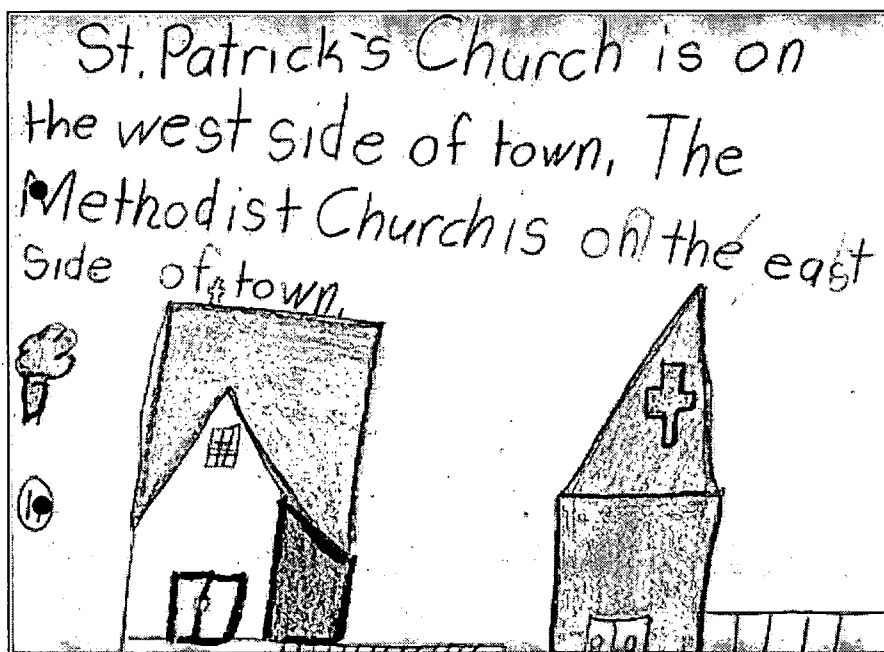 St. Patrick's Church is on
the west side of town, The
Methodist Church is on the east
side of town.